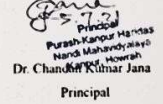 5.7.21
Principal
Purash-Kanpur Haridas
Nandi Mahavidyalaya
Kanpur, Howrah
Dr. Chandan Kumar Jana
Principal